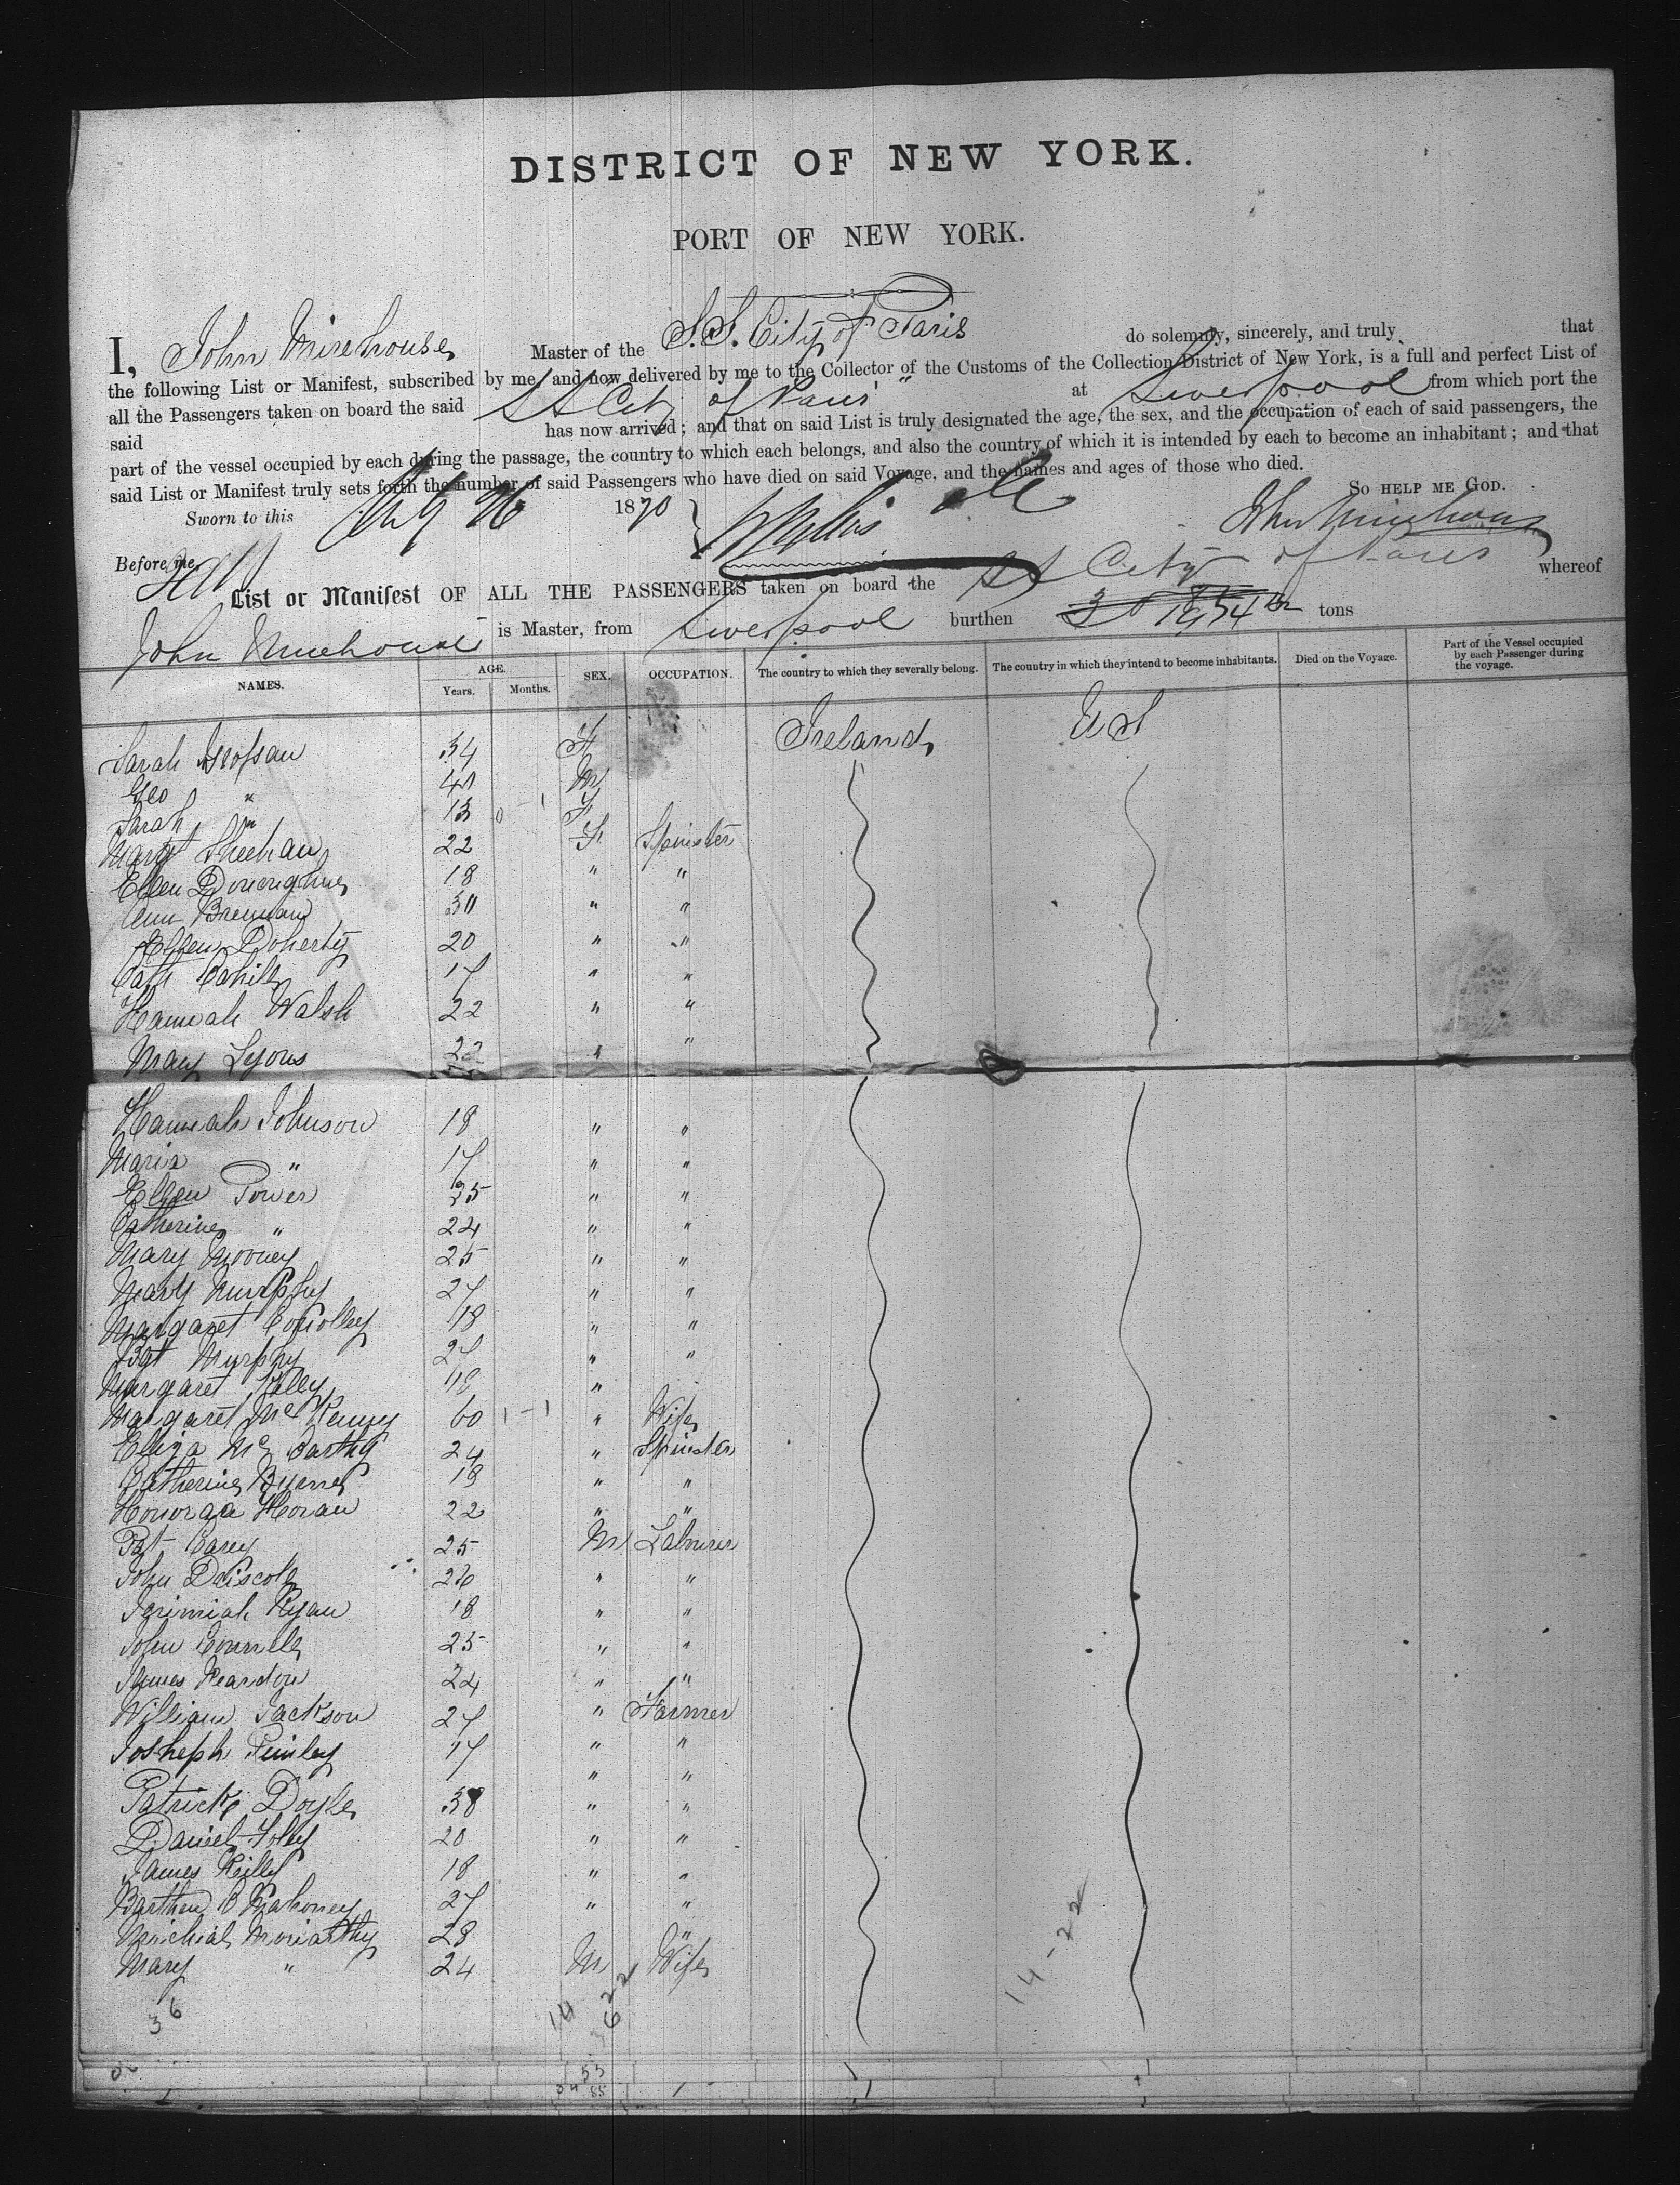 DISTRICT OF NEW YORK.
PORT OF NEW YORK.
I, John Mirehouse Master of the S.S. City of Paris do solemnly, sincerely, and truly that
the following List or Manifest, subscribed by me, and now delivered by me to the Collector of the Customs of the Collection District of New York, is a full and perfect List of
all the Passengers taken on board the said SS City of Paris at Liverpool from which port the
said has now arrived; and that on said List is truly designated the age, the sex, and the occupation of each of said passengers, the
part of the vessel occupied by each during the passage, the country to which each belongs, and also the country of which it is intended by each to become an inhabitant; and that
said List or Manifest truly sets forth the number of said Passengers who have died on said Voyage, and the names and ages of those who died.
SO HELP ME GOD.
Sworn to this 26 1870 John Mirehouse
Before me,
List or Manifest OF ALL THE PASSENGERS taken on board the SS City of Paris whereof
John Mirehouse is Master, from Liverpool burthen tons
NAMES. AGE. Years. Months. SEX. OCCUPATION. The country to which they severally belong. The country in which they intend to become inhabitants. Died on the Voyage. Part of the Vessel occupied by each Passenger during the voyage.
Sarah 34 F Ireland US
Geo " 40 M
Sarah " 13 F
Margt Sheehan 22 F Spinster
Ellen Donoughue 18 " "
Ann Brennan 30 " "
Ellen Doherty 20 " "
Cath Cahill 17 " "
Hannah Walsh 22 " "
Mary Lyons 22 " "
Hannah Johnson 18 " "
Maria " 17 " "
Ellen Power 25 " "
Catherine " 24 " "
Mary Mooney 25 " "
Mary Murphy 27 " "
Margaret Conolley 18 " "
Bgt Murphy 27 " "
Margaret Kelly 18 "
Margaret McKenny 60 1-1 " Wife
Eliza McCarthy 24 " Spinster
Catherine Byrne 18 " "
Honoraa Horan 22 " "
Pat Carey 25 M Labourer
John Driscoll 26 " "
Jerimiah Ryan 18 " "
John Connell 25 " "
James Reardon 24 " "
William Jackson 27 " Farmer
Josheph Finley 17 " "
" "
Patrick Doyle 38 " "
Daniel Foley 20 " "
James Reilly 18 " "
Barthew O'Mahoney 27 " "
Michial Moriarthy 28 "
Mary " 24 M Wife
36 14 22 14-22